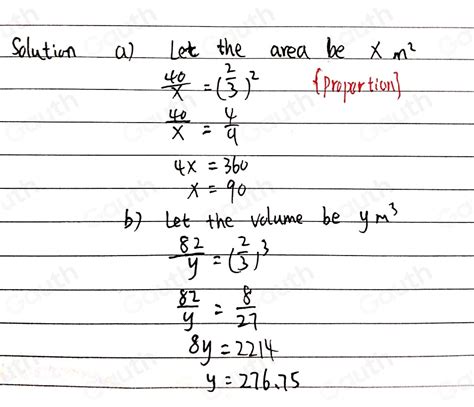 Solution a) Let the area be x m²
40/x = (2/3)² {proportion}
40/x = 4/9
4x = 360
x = 90
b) Let the volume be y m³
82/y = (2/3)³
82/y = 8/27
8y = 2214
y = 276.75